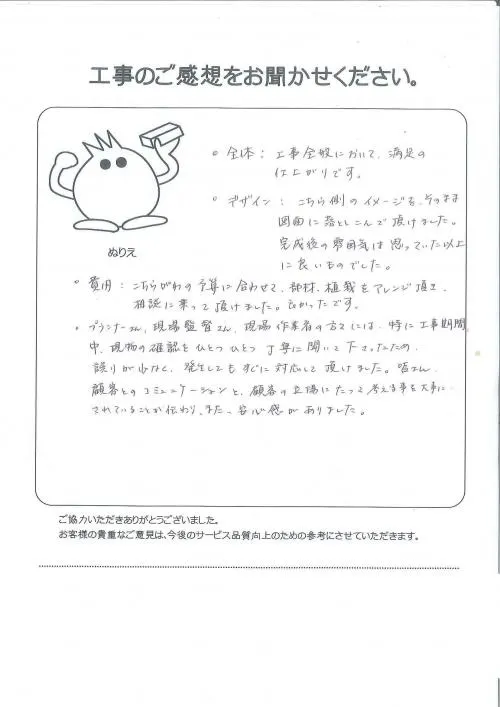 工事のご感想をお聞かせください。
ぬりえ
◦ 全体 : 工事全般において、満足の
仕上がりです。
◦ デザイン : こちら側のイメージを、そのまま
図面に落としこんで頂けました。
完成後の雰囲気は思っていた以上
に良いものでした。
◦ 費用 : こちらがわの予算に合わせて、部材、植栽をアレンジ頂き、
相談に乗って頂けました。良かったです。
◦ プランナーさん、現場監督さん、現場作業者の方々には、特に工事期間
中、現物の確認をひとつひとつ丁寧に聞いて下さったため、
誤りが少なく、発生してもすぐに対応して頂けました。皆さん、
顧客とのコミュニケーションと、顧客の立場にたって考える事を大事に
されていることが伝わり、また、安心感がありました。
ご協力いただきありがとうございました。
お客様の貴重なご意見は、今後のサービス品質向上のための参考にさせていただきます。